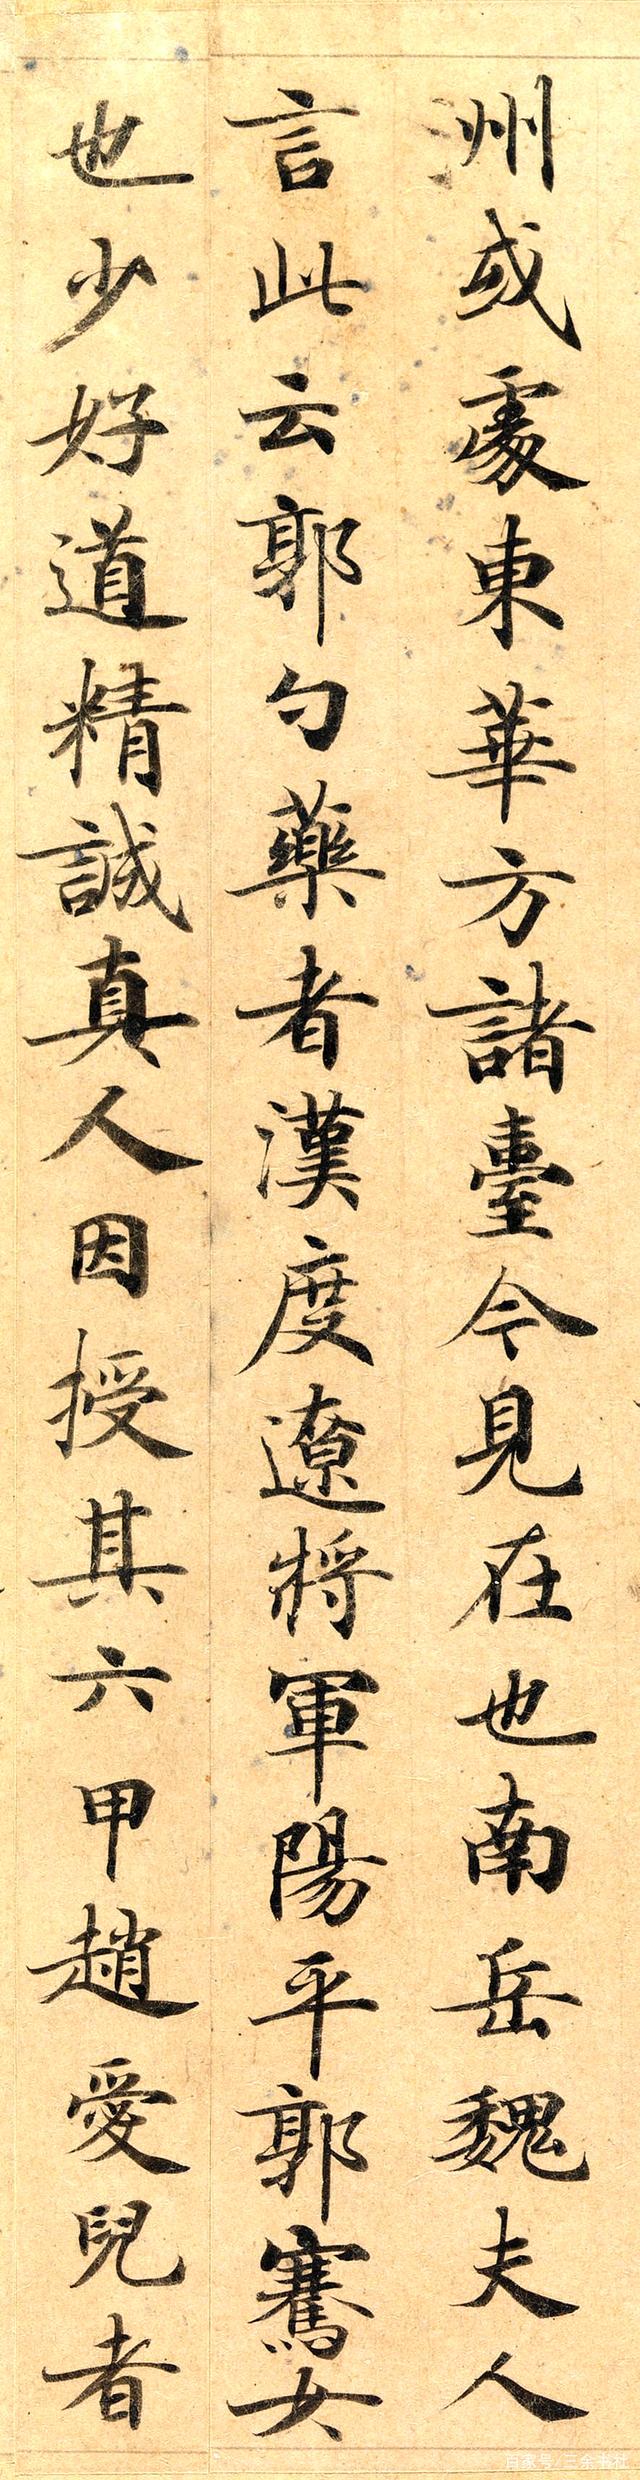 洲或處東華方諸臺今見在也南岳魏夫人
言此云郭勺藥者漢度遼將軍陽平郭騫女
也少好道精誠真人因授其六甲趙愛兒者
百家号/三余书社